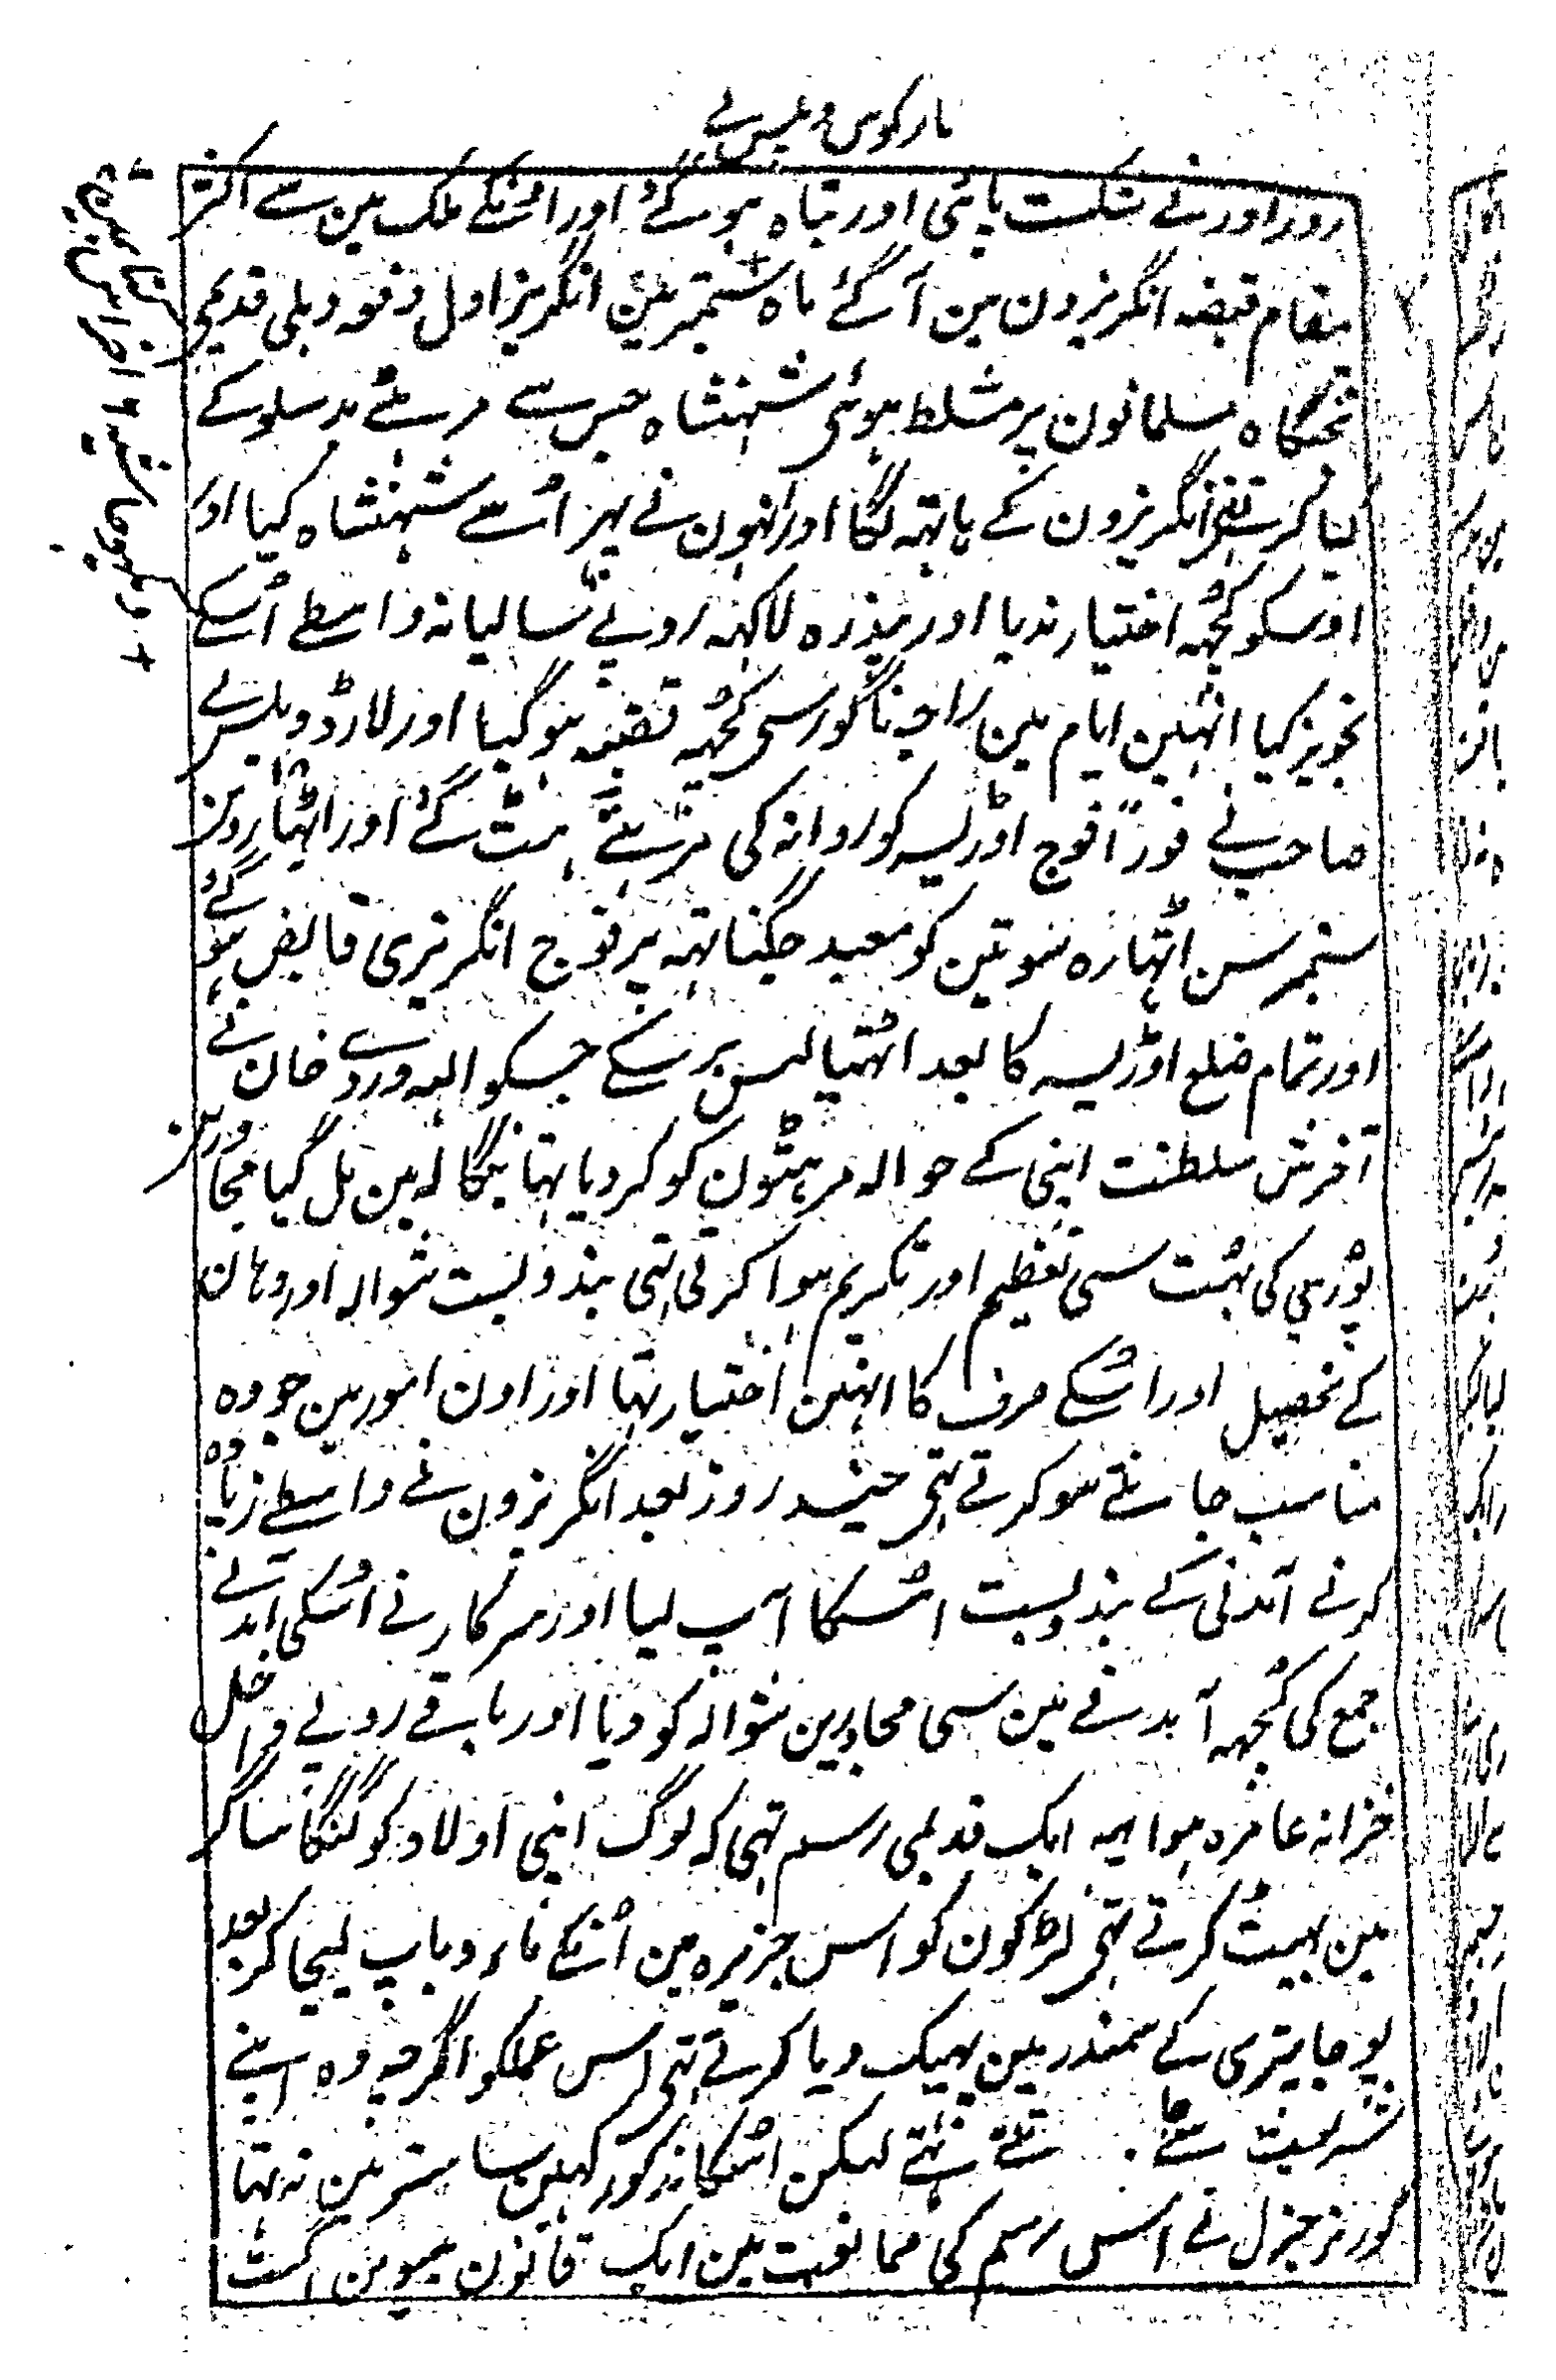 مارکوس ویلسلے
زور اور نے شکست پائی اور تباہ ہو گئے اور اونکے ملک مین سے اکثر
مقام قبضہ انگریزون مین آگئے ماہ ستمبر مین انگریز اول دفعہ دہلی قدیمی
تختگاہ مسلمانون پر مسلط ہوئی شہنشاہ جس سے مرہٹے بدسلوکے
کیا کرتے تھے انگریزون کے ہاتہہ لگا اور انہون نے پہر اُسے شہنشاہ کیا اور
اوسکو کچہہ اختیار ندیا اور پندرہ لاکہہ روپے سالیانہ واسطے اُسکے
تجویز کیا انہین ایام مین راجہ ناگور سی کچہہ قضیہ ہو گیا اور لارڈ ویلسلے
صاحب نے فوراً فوج اوڑیسہ کو روانہ کی مرہٹے ہٹ گئے اور اٹہاروین
ستمبر سن اٹہارہ سو تین کو معبد جگناتہہ پر فوج انگریزی قابض ہو گئے
اور تمام ضلع اوڑیسہ کا بعد اٹہتالیس برسکے جسکو الہ وردے خان نے
آخرش سلطنت اپنی کے حوالہ مرہٹون کو کر دیا تہا بنگالہ مین مل گیا مجاورین
پوری کی بہت سی تعظیم اور تکریم ہوا کرتی تہی بندوبست شوالہ اور وہان
کے تحصیل اور اسکے صرف کا انہین اختیار تہا اور اون امور مین جو وہ
مناسب جانتے سو کرتے تہی چند روز بعد انگریزون نے واسطے زیادہ
کرنے آمدنی کے بندوبست اسکا آپ لیا اور سرکار نے اُسکی آمدنے
جمع کی کچہہ آمدنے مین سی مجاورین شوالہ کو دیا اور باقے روپے داخل
خزانہ عامرہ ہوا یہہ ایک قدیمی رسم تہی کہ لوگ اپنی اولاد کو گنگا ساگر
مین بہینٹ کرتے تہی لڑکون کو اس جزیرہ مین اُنکے ماں و باپ لیجا کر بعد
پوجا پتری کے سمندر مین پہینک دیا کرتے تہی اس عملکو اگرچہ وہ اپنے
شریعت سے جانتے تہے لیکن اسکا مذکور کہین ساستر مین نہ تہا
گورنر جنرل نے اس رسم کی ممانعت مین ایک قانون بیسوین اگست